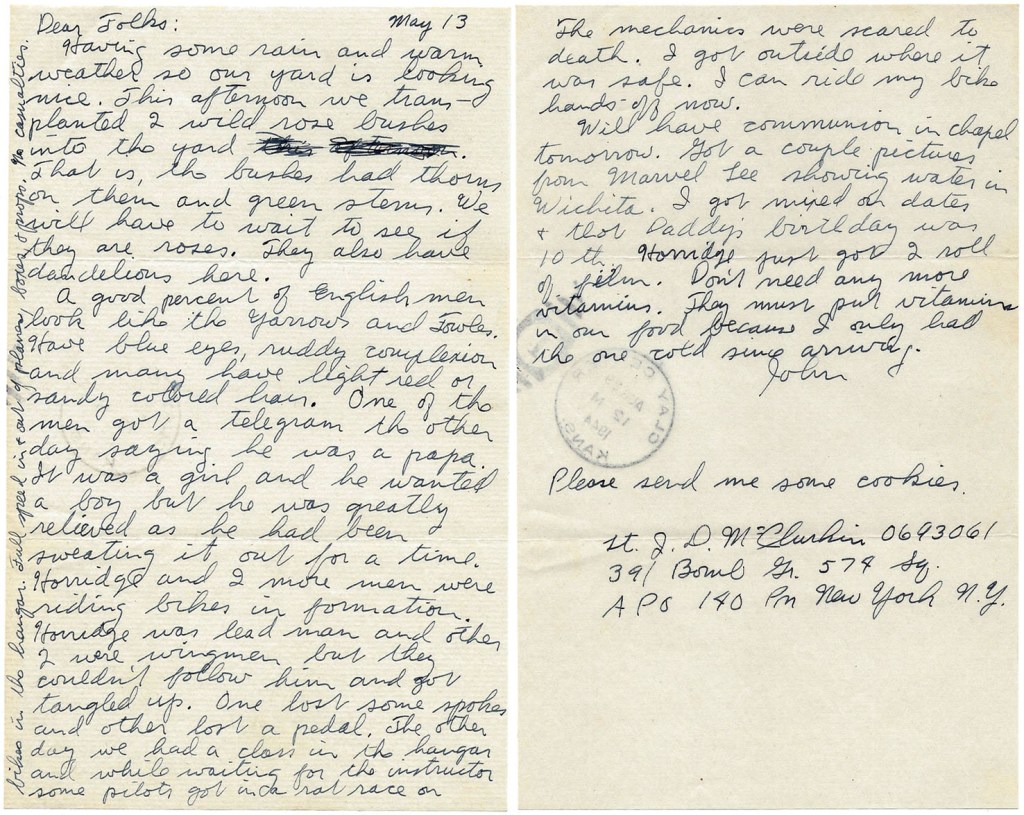 May 13
Dear Folks:
Having some rain and warm
weather so our yard is looking
nice. This afternoon we trans-
planted 2 wild rose bushes
into the yard
That is, the bushes had thorns
on them and green stems. We
will have to wait to see if
they are roses. They also have
dandelions here.
A good percent of English men
look like the Yarrows and Fowles.
Have blue eyes, ruddy complexion
and many have light red or
sandy colored hair. One of the
men got a telegram the other
day saying he was a papa.
It was a girl and he wanted
a boy but he was greatly
relieved as he had been
sweating it out for a time.
Horridge and 2 more men were
riding bikes in formation.
Horridge was lead man and other
2 were wingmen but they
couldn't follow him and got
tangled up. One lost some spokes
and other lost a pedal. The other
day we had a class in the hangar
and while waiting for the instructor
some pilots got in a rat race on
bikes in the hangar. Full speed in & out of planes, boxes & props. No casualties.
The mechanics were scared to
death. I got outside where it
was safe. I can ride my bike
hands off now.
Will have communion in chapel
tomorrow. Got a couple pictures
from Marvel Lee showing water in
Wichita. I got mixed on dates
& thot Daddy's birthday was
10th. Horridge just got 2 roll
of film. Don't need any more
vitamins. They must put vitamins
in our food because I only had
the one cold since arriving.
John
CLAY CE
12 M
1944
KANS
Please send me some cookies.
Lt. J. D. McClurkin 0693061
391 Bomb Gr. 574 Sq.
APO 140 Pm New York N.Y.